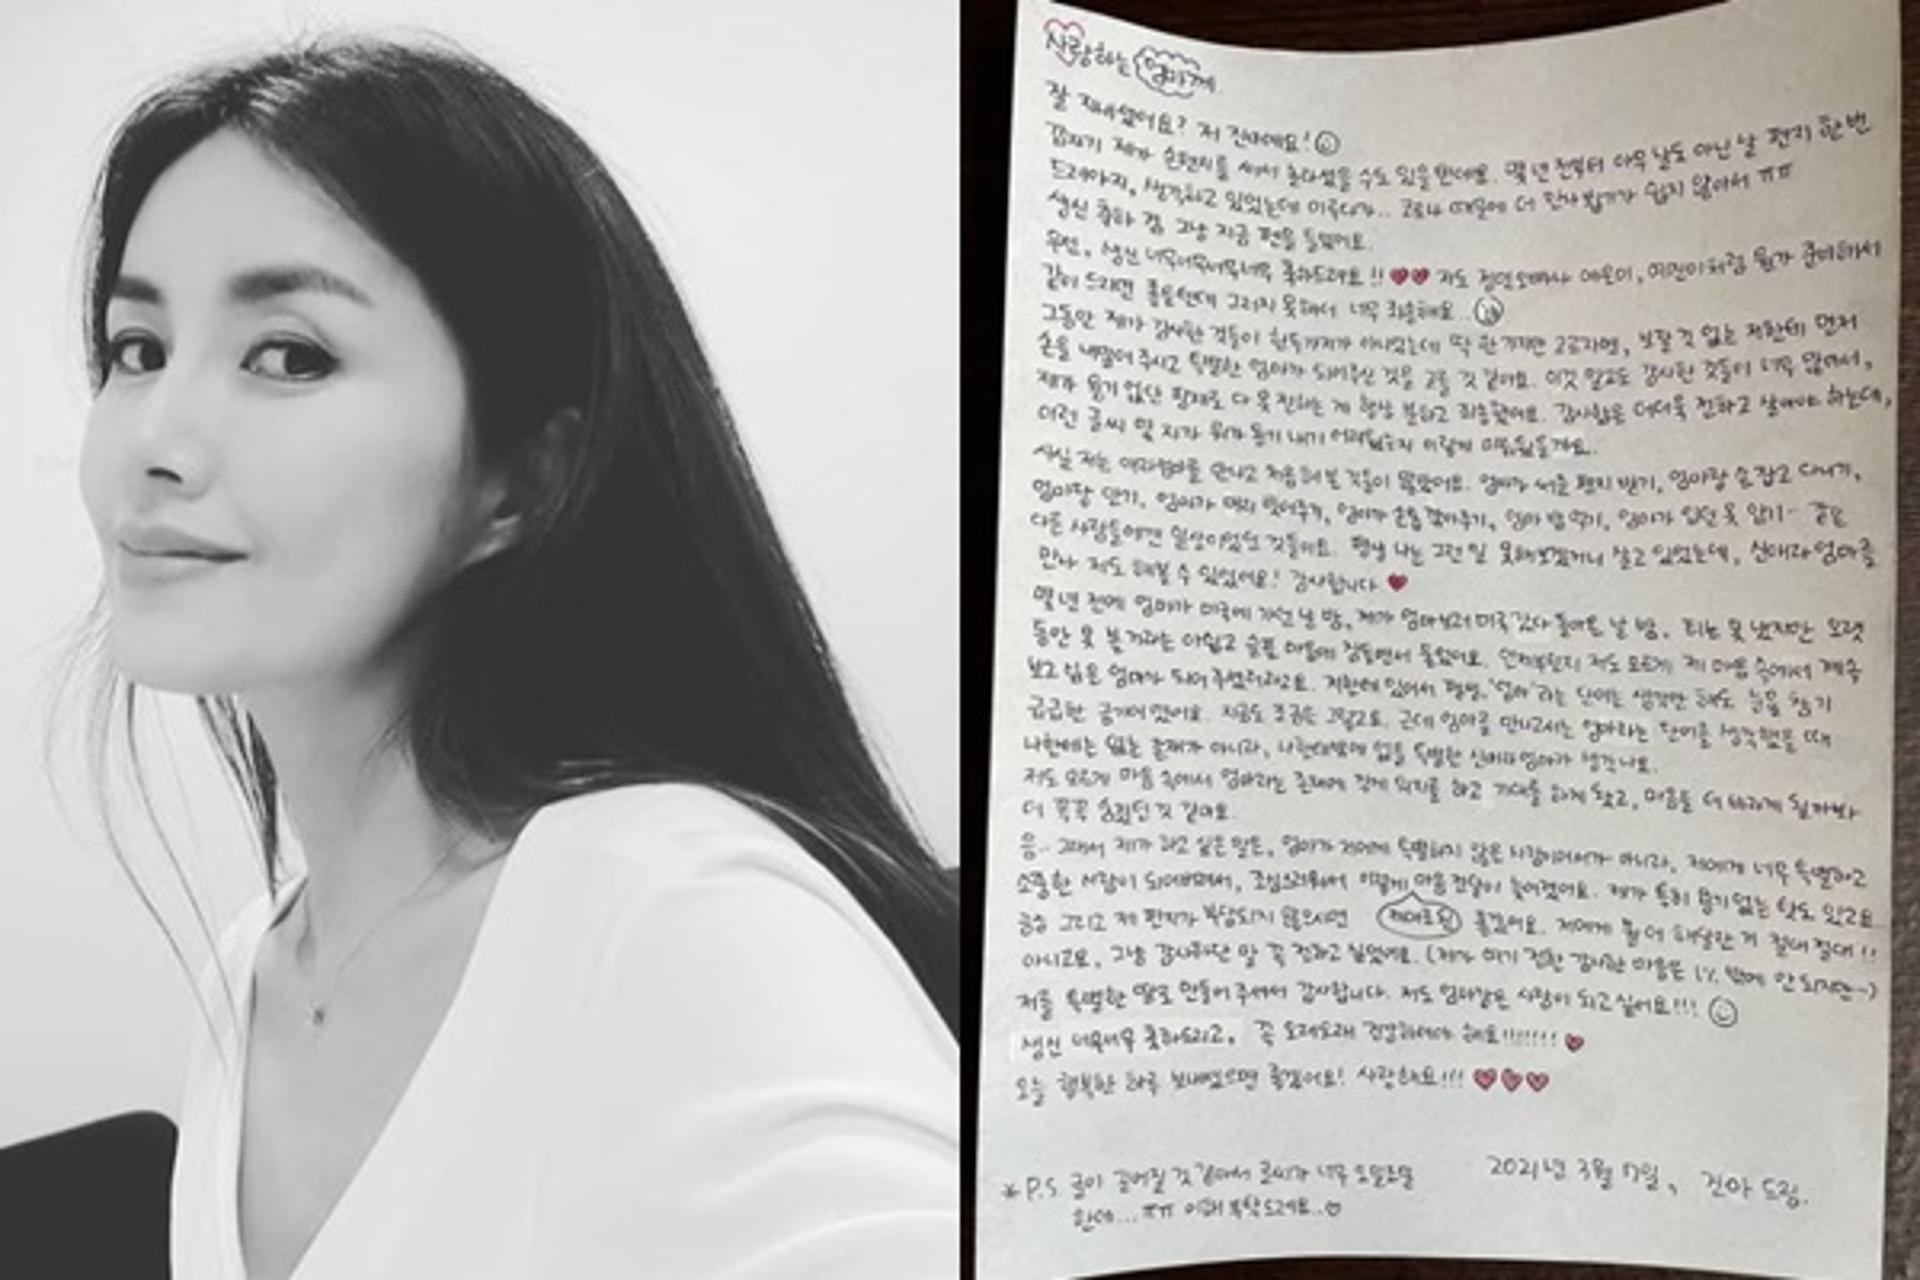 사랑하는 엄마께
잘 지내셨어요? 저 진아에요!
갑자기 제가 손편지를 써서 놀라셨을 수도 있을텐데요. 몇 년 전부터 아무 날도 아닌 날 편지 한 번
드려야지, 생각하고 있었는데 미루다가.. 코로나 때문에 더 만나뵙기가 쉽지 않아서 ㅠㅠ
생신 축하 겸 그냥 지금 펜을 들었어요.
우선, 생신 너무너무너무너무 축하드려요!! 저도 정민오빠나 예은이, 예진이처럼 뭔가 준비해서
같이 드리면 좋을텐데 그러지 못해서 너무 죄송해요..
그동안 제가 감사한 것들이 한두가지가 아니었는데 딱 한가지만 고르자면, 보잘 것 없는 저한테 먼저
손을 내밀어 주시고 특별한 엄마가 되어주신 것을 고를 것 같아요. 이것 말고도 감사한 것들이 너무 많아서,
제가 용기 없단 핑계로 다 못 전하는 게 항상 분하고 죄송했어요. 감사함은 더더욱 전하고 살아야 하는데,
이런 글씨 몇 자가 뭐가 용기 내기 어려웠는지 이렇게 미뤘을까요..
사실 저는 애라엄마를 만나고 처음 해 본 것들이 많았어요. 엄마가 써준 편지 받기, 엄마랑 손 잡고 다니기,
엄마랑 안기, 엄마가 머리 묶어주기, 엄마가 손톱 깎아주기, 엄마 밥 먹기, 엄마가 입던 옷 입기… 같은
다른 사람들에겐 일상이었던 것들이요. 평생 나는 그런 일 못해보겠거니 살고 있었는데, 신애라 엄마를
만나 저도 해볼 수 있었어요! 감사합니다
몇 년 전에 엄마가 미국에 가던 날 밤, 제가 엄마보러 미국 갔다 돌아온 날 밤, 티는 못 냈지만 오랫
동안 못 볼 거라는 아쉽고 슬픈 마음에 잠도 들었어요. 언제부턴지 저도 모르게 제 마음 속에서 계속
보고 싶은 엄마가 되어 주셨더라고요. 저한테 있어서 평생, '엄마'라는 단어는 생각만 해도 눈물 참기
급급한 공기여었어요. 지금도 조금은 그렇고요. 근데 엄마를 만나고서는 엄마라는 단어를 생각했을 때
나한테는 없는 존재가 아니라, 나한테밖에 없을 특별한 신애라 엄마가 생각나요.
저도 모르게 마음 속에서 엄마라는 존재에 장게 의지를 하고 기대를 하게 됐고, 마음을 더 바라게 될까봐
더 꼭꼭 숨겼던 것 같아요.
음… 그래서 제가 하고 싶은 말은, 엄마가 저에게 특별하지 않은 사람이어서가 아니라, 저에게 너무 특별하고
소중한 사람이 되어버려서, 조심스러워서 이렇게 마음 전달이 늦어졌어요. 제가 특히 용기 없는 탓도 있고요
그리고 제 편지가 부담되지 않으시면 좋겠어요. 저에게 뭘 더 해달란 거 절대 절대!!
아니고요, 그냥 감사하단 말 꼭 전하고 싶었어요. (제가 여기 전한 감사한 마음은 1% 밖에 안 되지만~)
저를 특별한 딸로 만들어 주셔서 감사합니다. 저도 엄마같은 사람이 되고 싶어요!!!
생신 너무너무 축하드리고, 꼭 오래오래 건강하셔야 해요!!!!!!!
오늘 행복한 하루 보내셨으면 좋겠어요! 사랑해요!!!
2021년 3월 17일, 진아 드림.
*P.S. 글이 길어질 것 같아서 글씨가 너무 오밀조밀
한데... ㅠㅠ 이해 부탁드려요..